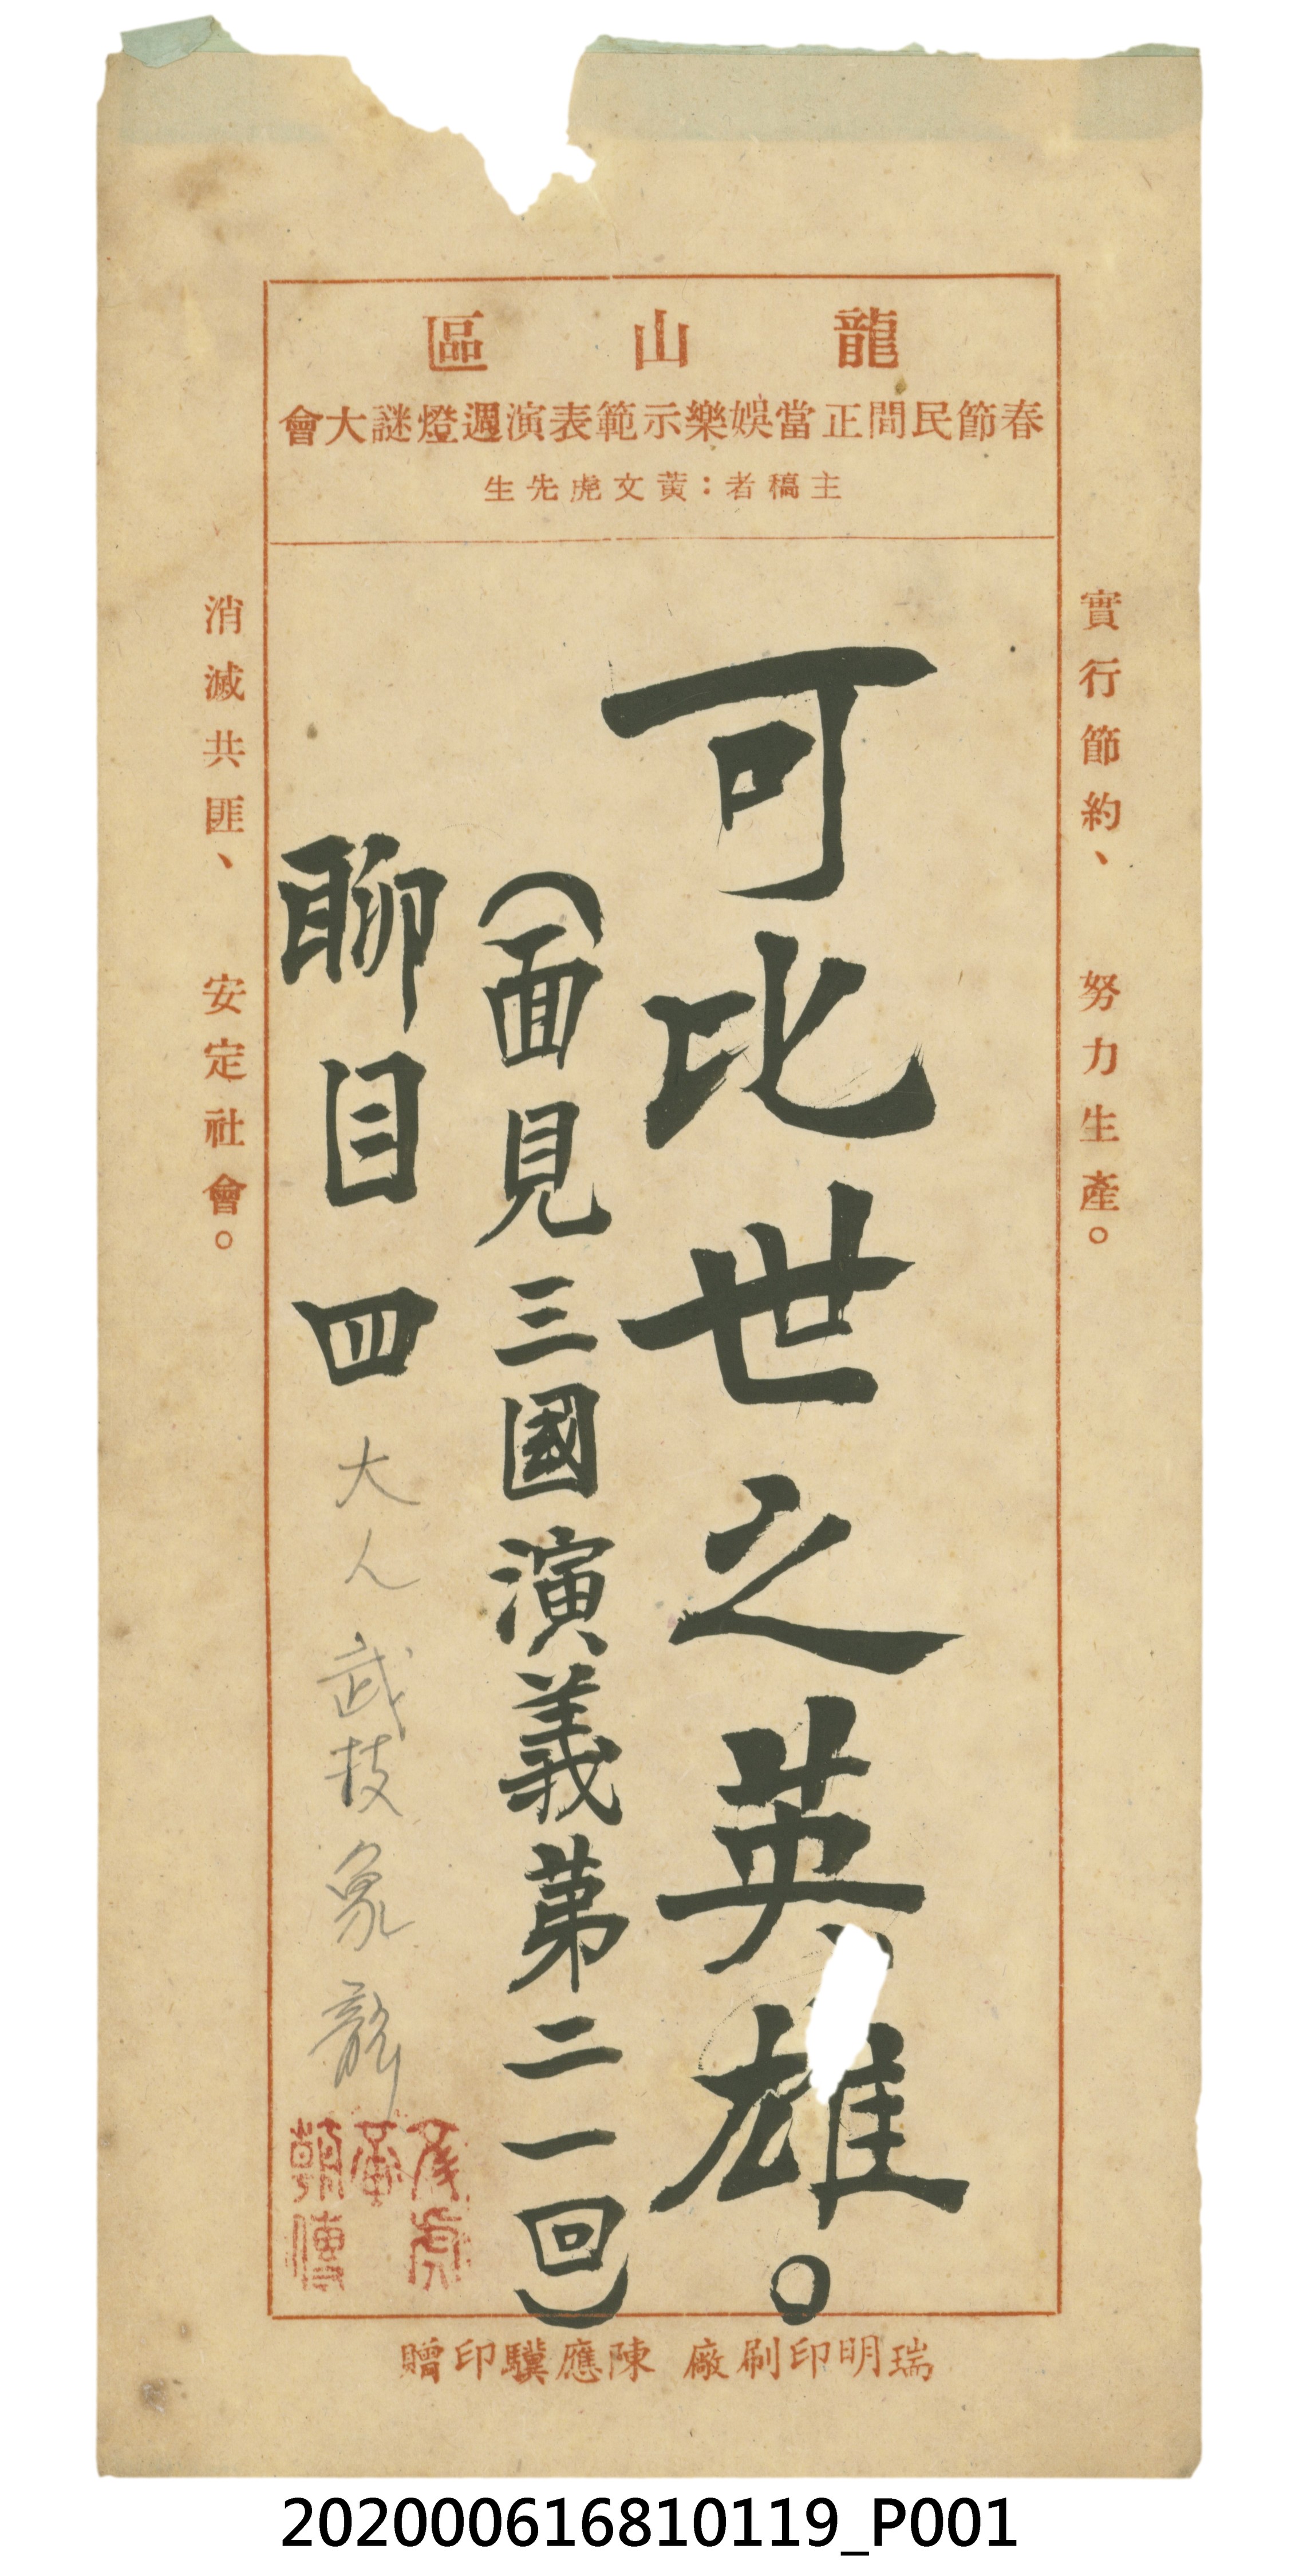 龍山區
春節民間正當娛樂示範表演週燈謎大會
主稿者：黃文虎先生
實行節約、努力生產。
可比世之英雄。
（面見三國演義第二一回）
聊目四
大人武技象龍
消滅共匪、安定社會。
瑞明印刷廠 陳應驥印贈
202000616810119_P001